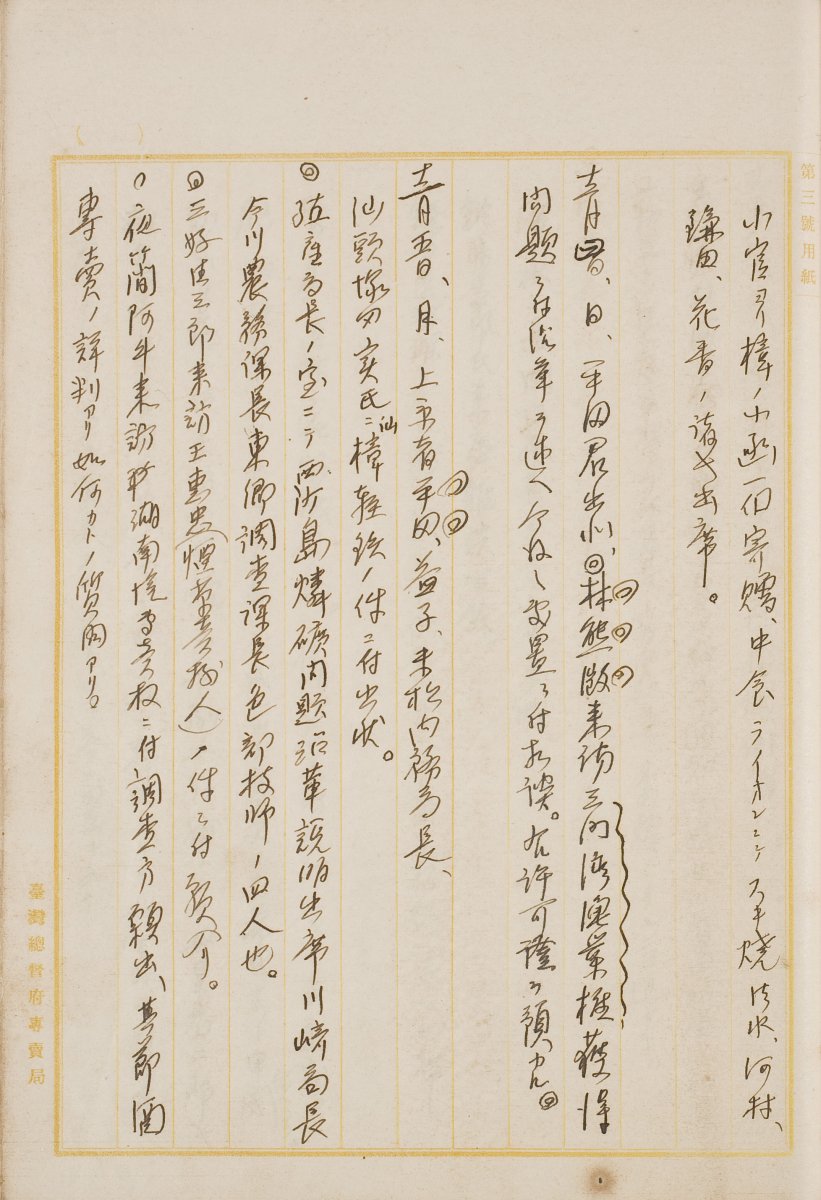 第三號用紙
小官ヨリ樟ノ小函一個寄贈、中食ライオンニテスキ焼清水、河村、
鎌田、花香ノ諸氏出席。
十二月四日、日、平田君出北、林熊徴来訪三门湾漁業権獲得
問題ニ付沿革ヲ述ヘ今後ノ処置ニ付相談。右許可證ヲ預ル
十二月五日、月、上京者平田、益子、末松内務局長、
汕頭塚田実氏ニ樟ノ件ニ付出状。
殖産局長ノ室ニテ西沙島燐礦問題沿革説明出席川崎局長
今川農務課長東郷調査課長色部技師ノ四人也。
三好徳三郎来訪王恵忠(煙草売捌人)ノ件ニ付紹介。
夜簡阿牛来訪湖南専売权ニ付調査方願出、其節酒
専賣ノ評判アリ如何カトノ質問アリ。
臺灣總督府專賣局